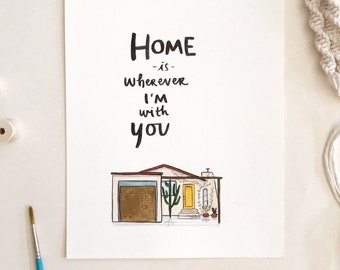 HOME
-is-
Wherever
I'M
with
you